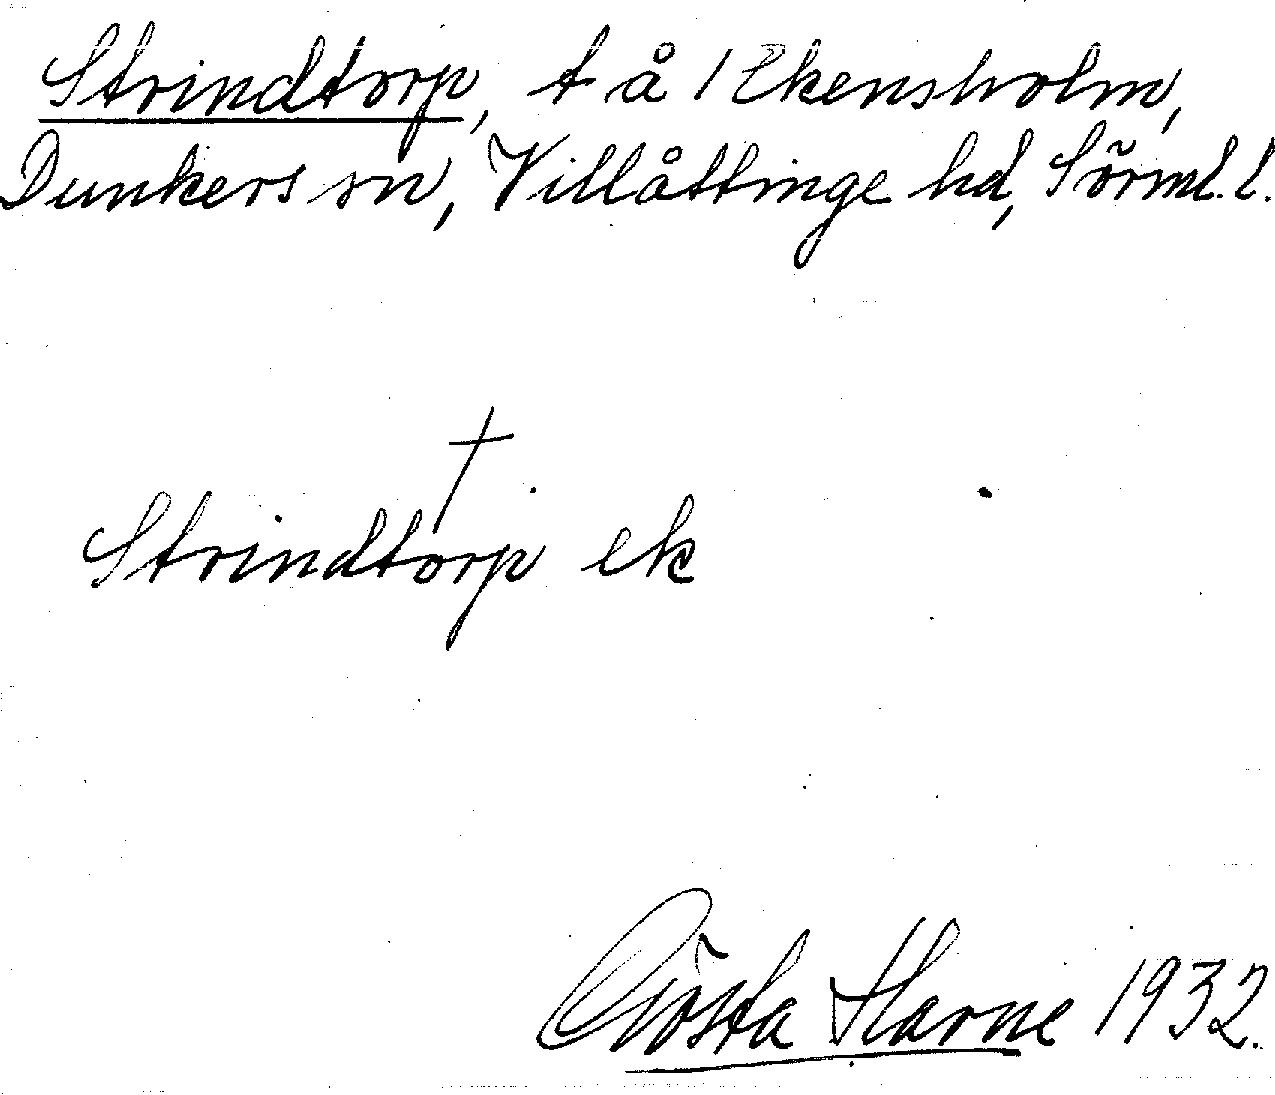 Strindtorp, t å 1 Ekensholm,
Dunkers sn, Villåttinge hd, Sörml. l.
†
Strindtorp ek
Gösta Harne 1932.